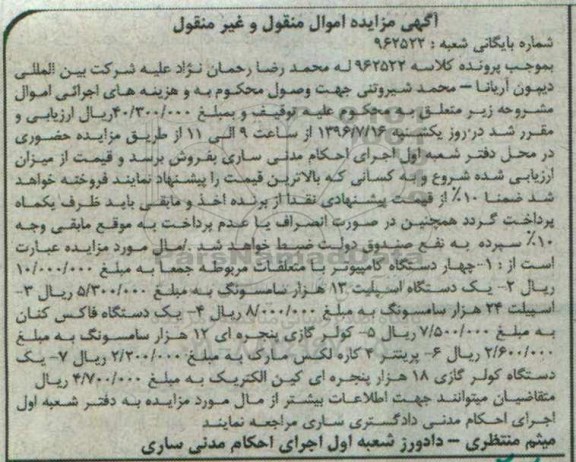 آگهی مزایده اموال منقول و غیر منقول
شماره بایگانی شعبه : ۹۶۲۵۲۲
بموجب پرونده کلاسه ۹۶۲۵۲۲ له محمد رضا رحمان نژاد علیه شرکت بین المللی
دیبون آریانا – محمد شیروتنی جهت وصول محکوم به و هزینه های اجرائی اموال
مشروحه زیر متعلق به محکوم علیه توقیف و بمبلغ ۴۰/۳۰۰/۰۰۰ریال ارزیابی و
مقرر شد در روز یکشنبه ۱۳۹۶/۷/۱۶ از ساعت ۹ الی ۱۱ از طریق مزایده حضوری
در محل دفتر شعبه اول اجرای احکام مدنی ساری بفروش برسد و قیمت از میزان
ارزیابی شده شروع و به کسانی که بالاترین قیمت را پیشنهاد نمایند فروخته خواهد
شد ضمنا ۱۰٪ از قیمت پیشنهادی نقدا از برنده اخذ و مابقی باید ظرف یکماه
پرداخت گردد همچنین در صورت انصراف یا عدم پرداخت به موقع مابقی وجه
۱۰٪ سپرده به نفع صندوق دولت ضبط خواهد شد ./مال مورد مزایده عبارت
است از : ۱-چهار دستگاه کامپیوتر با متعلقات مربوطه جمعا به مبلغ ۱۰/۰۰۰/۰۰۰
ریال ۲- یک دستگاه اسپلیت ۱۳ هزار سامسونگ به مبلغ ۵/۳۰۰/۰۰۰ ریال ۳-
اسپیلت ۲۴ هزار سامسونگ به مبلغ ۸/۰۰۰/۰۰۰ ریال ۴- یک دستگاه فاکس کنان
به مبلغ ۷/۵۰۰/۰۰۰ ریال ۵- کولر گازی پنجره ای ۱۲ هزار سامسونگ به مبلغ
۲/۶۰۰/۰۰۰ ریال ۶- پرینتر ۴ کاره لکس مارک به مبلغ ۲/۲۰۰/۰۰۰ ریال ۷- یک
دستگاه کولر گازی ۱۸ هزار پنجره ای کین الکتریک به مبلغ ۴/۷۰۰/۰۰۰ ریال
متقاضیان میتوانند جهت اطلاعات بیشتر از مال مورد مزایده به دفتر شعبه اول
اجرای احکام مدنی دادگستری ساری مراجعه نمایند
میثم منتظری – دادورز شعبه اول اجرای احکام مدنی ساری
ParsNamadData